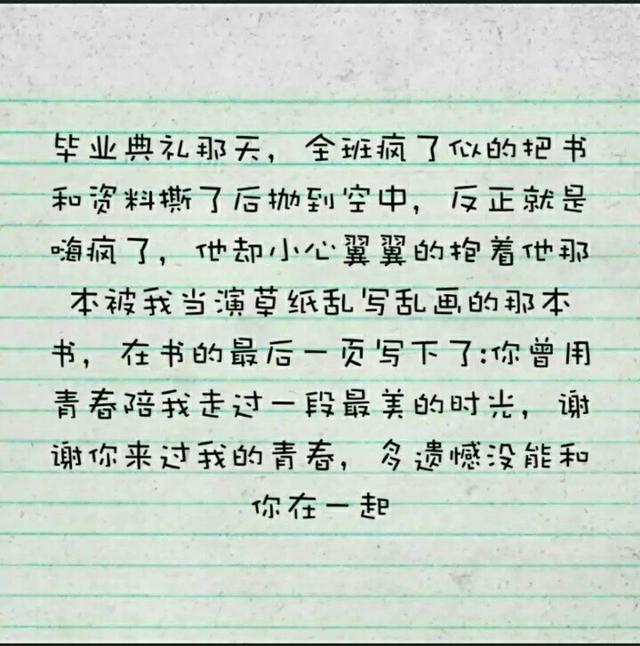 毕业典礼那天，全班疯了似的把书
和资料撕了后抛到空中，反正就是
嗨疯了，他却小心翼翼的抱着他那
本被我当演草纸乱写乱画的那本
书，在书的最后一页写下了:你曾用
青春陪我走过一段最美的时光，谢
谢你来过我的青春，多遗憾没能和
你在一起